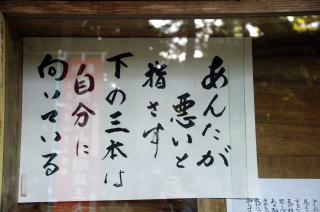 あんたが
悪いと
指さす
下の三本は
自分に
向いている